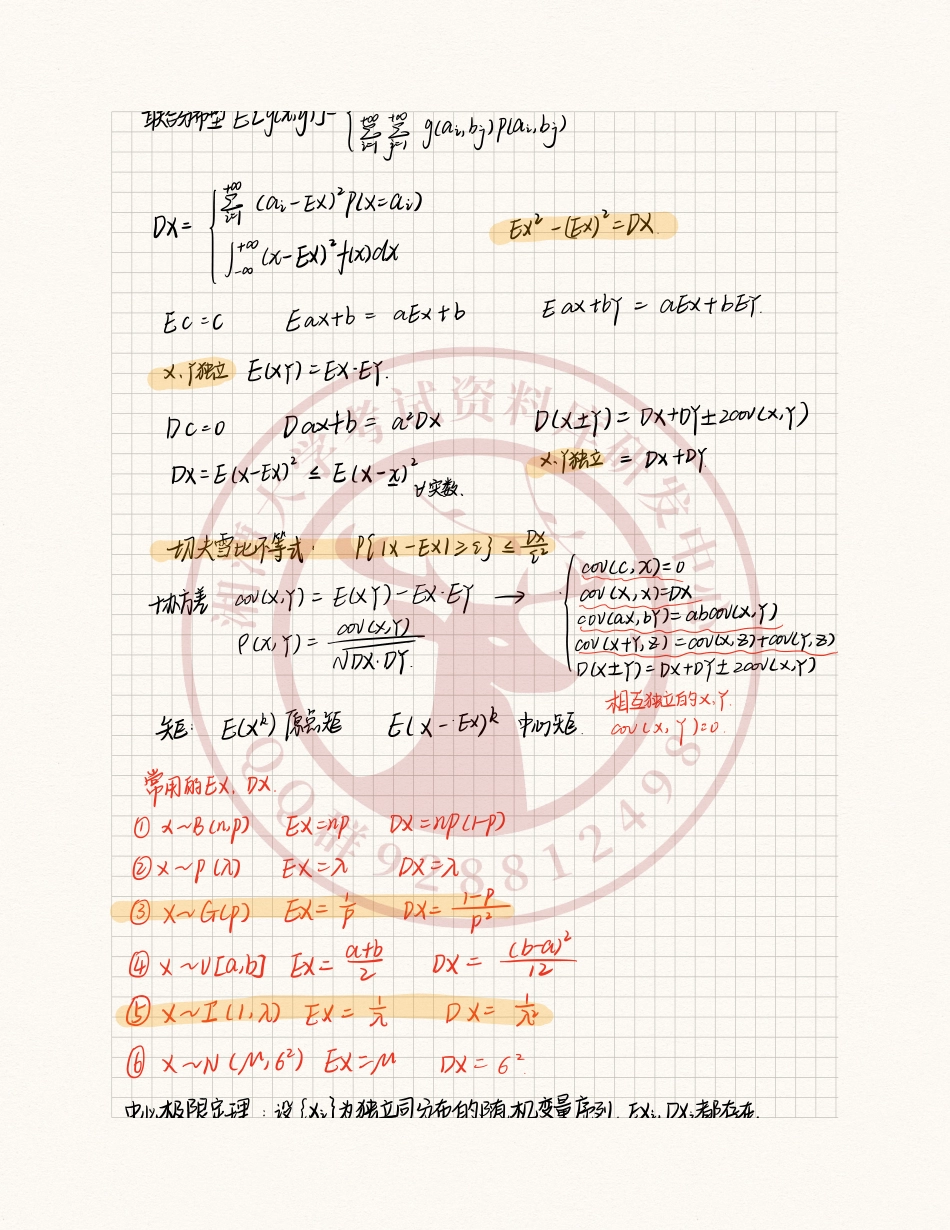 联合分布型 E[g(x,y)]= { Σ_{i=1}^{+∞} Σ_{j=1}^{+∞} g(ai,bj)P(ai,bj)
DX= { Σ_{i=1}^{+∞} (ai-EX)²P(X=ai)
∫_{-∞}^{+∞} (x-EX)²f(x)dx
EX²-(EX)²=DX
Ec=c Eax+b= aEx+b Eax+bY = aEx+bEY.
x、Y独立 E(XY)=EX·EY.
Dc=0 Dax+b= a²Dx D(X±Y)= DX+DY±2cov(X,Y)
DX=E(X-EX)² ≤ E(X-x)² ∀实数. x、Y独立 = DX+DY
切夫雪比不等式: P{|X-EX|≥ε}≤DX/ε²
协方差 cov(X,Y)= E(XY)-EX·EY →
{ cov(C,X)=0
cov(X,X)=DX
cov(ax,bY)=abcov(X,Y)
cov(X+Y,Z)=cov(X,Z)+cov(Y,Z)
D(X±Y)=DX+DY±2cov(X,Y)
ρ(X,Y)= cov(X,Y)/√DX·DY.
相互独立的X,Y.
cov(X,Y)=0.
矩: E(X^k)原点矩 E(X-EX)^k 中心矩.
常用的EX、DX.
① X~B(n,p) EX=np DX=np(1-p)
② X~P(λ) EX=λ DX=λ
③ X~G(p) EX=1/p DX=(1-p)/p²
④ X~U[a,b] EX=(a+b)/2 DX=(b-a)²/12
⑤ X~I(1,λ) EX=1/λ DX=1/λ²
⑥ X~N(μ,6²) EX=μ DX=6².
中心极限定理:设{Xi}为独立同分布的随机变量序列, EXi,DXi都存在.
湘潭大学考试资料库研发中心
QQ群928812498